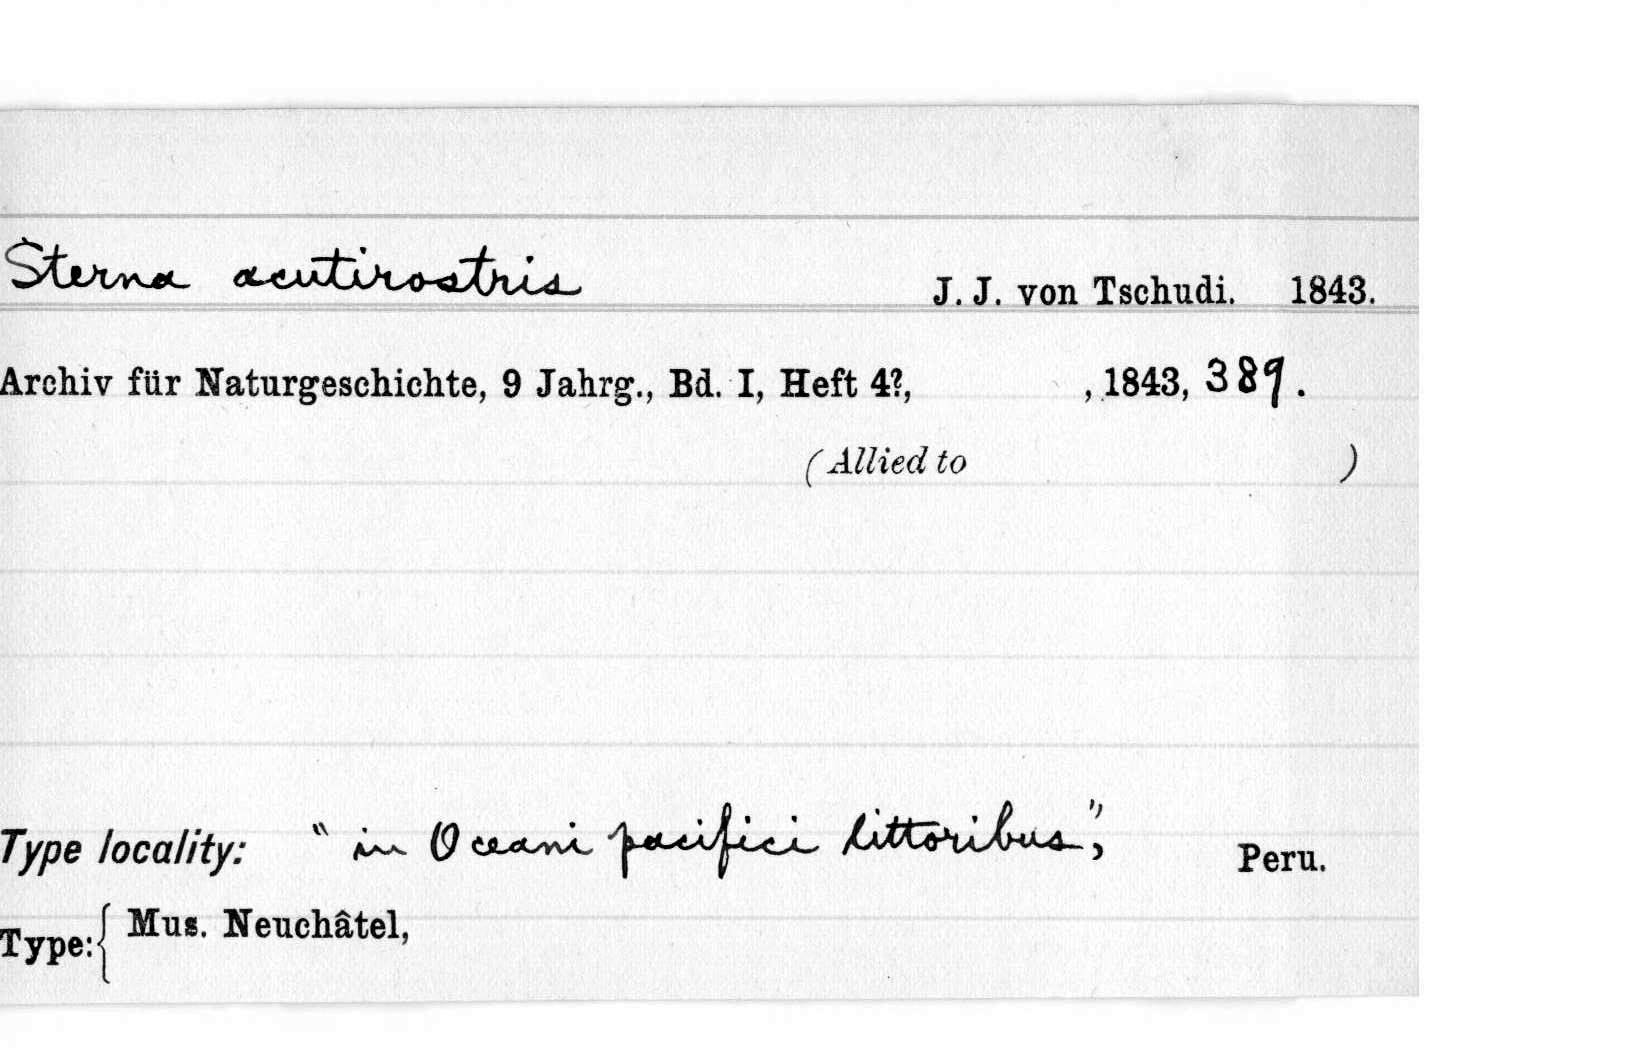 Sterna acutirostris J. J. von Tschudi. 1843.
Archiv für Naturgeschichte, 9 Jahrg., Bd. I, Heft 4?, , 1843, 389.
(Allied to )
Type locality: "in Oceani pacifici littoribus", Peru.
Type: { Mus. Neuchâtel,